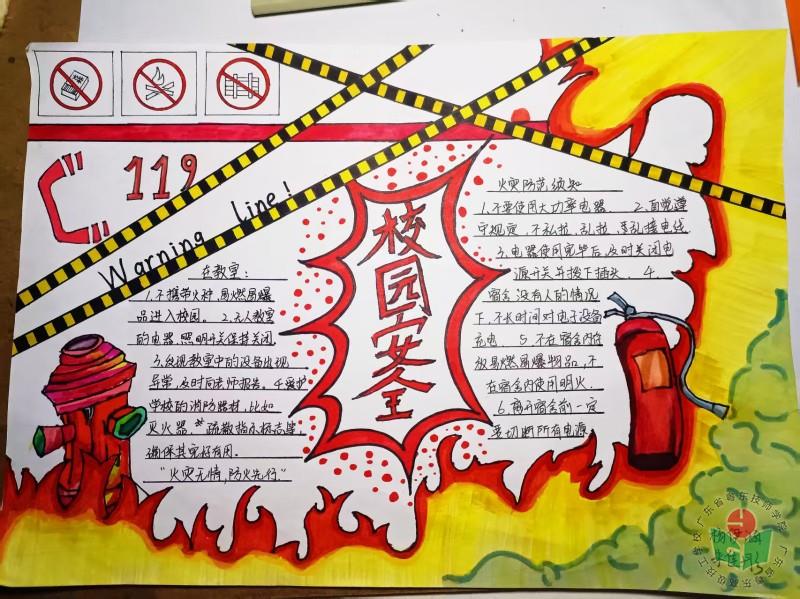 119
Warning line!
校园安全
在教室:
1.不携带火种、易燃易爆
品进入校园。 2.无人教室
的电器、照明开关保持关闭.
3.发现教室中的设备出现
异常,及时向老师报告。4.爱护
学校的消防器材,比如
灭火器、疏散指示标志等,
确保其完好有用。
"火灾无情,防火先行。"
火灾防范须知
1.不要使用大功率电器. 2.自觉遵
守规定,不私拉、乱拉、乱接电线
3.电器使用完毕后,及时关闭电
源开关并拨下插头. 4.
宿舍没有人的情况
下,不长时间对电子设备
充电. 5.不在宿舍内存
放易燃易爆物品,不
在宿舍内使用明火.
6.离开宿舍前一定
要切断所有电源.